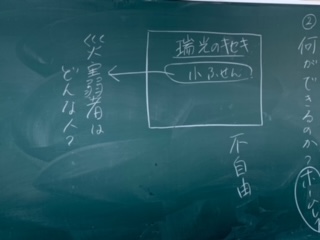 ②何ができるのか?
不自由
瑞光のキセキ
小ふせん
災害弱者は
どんな人?